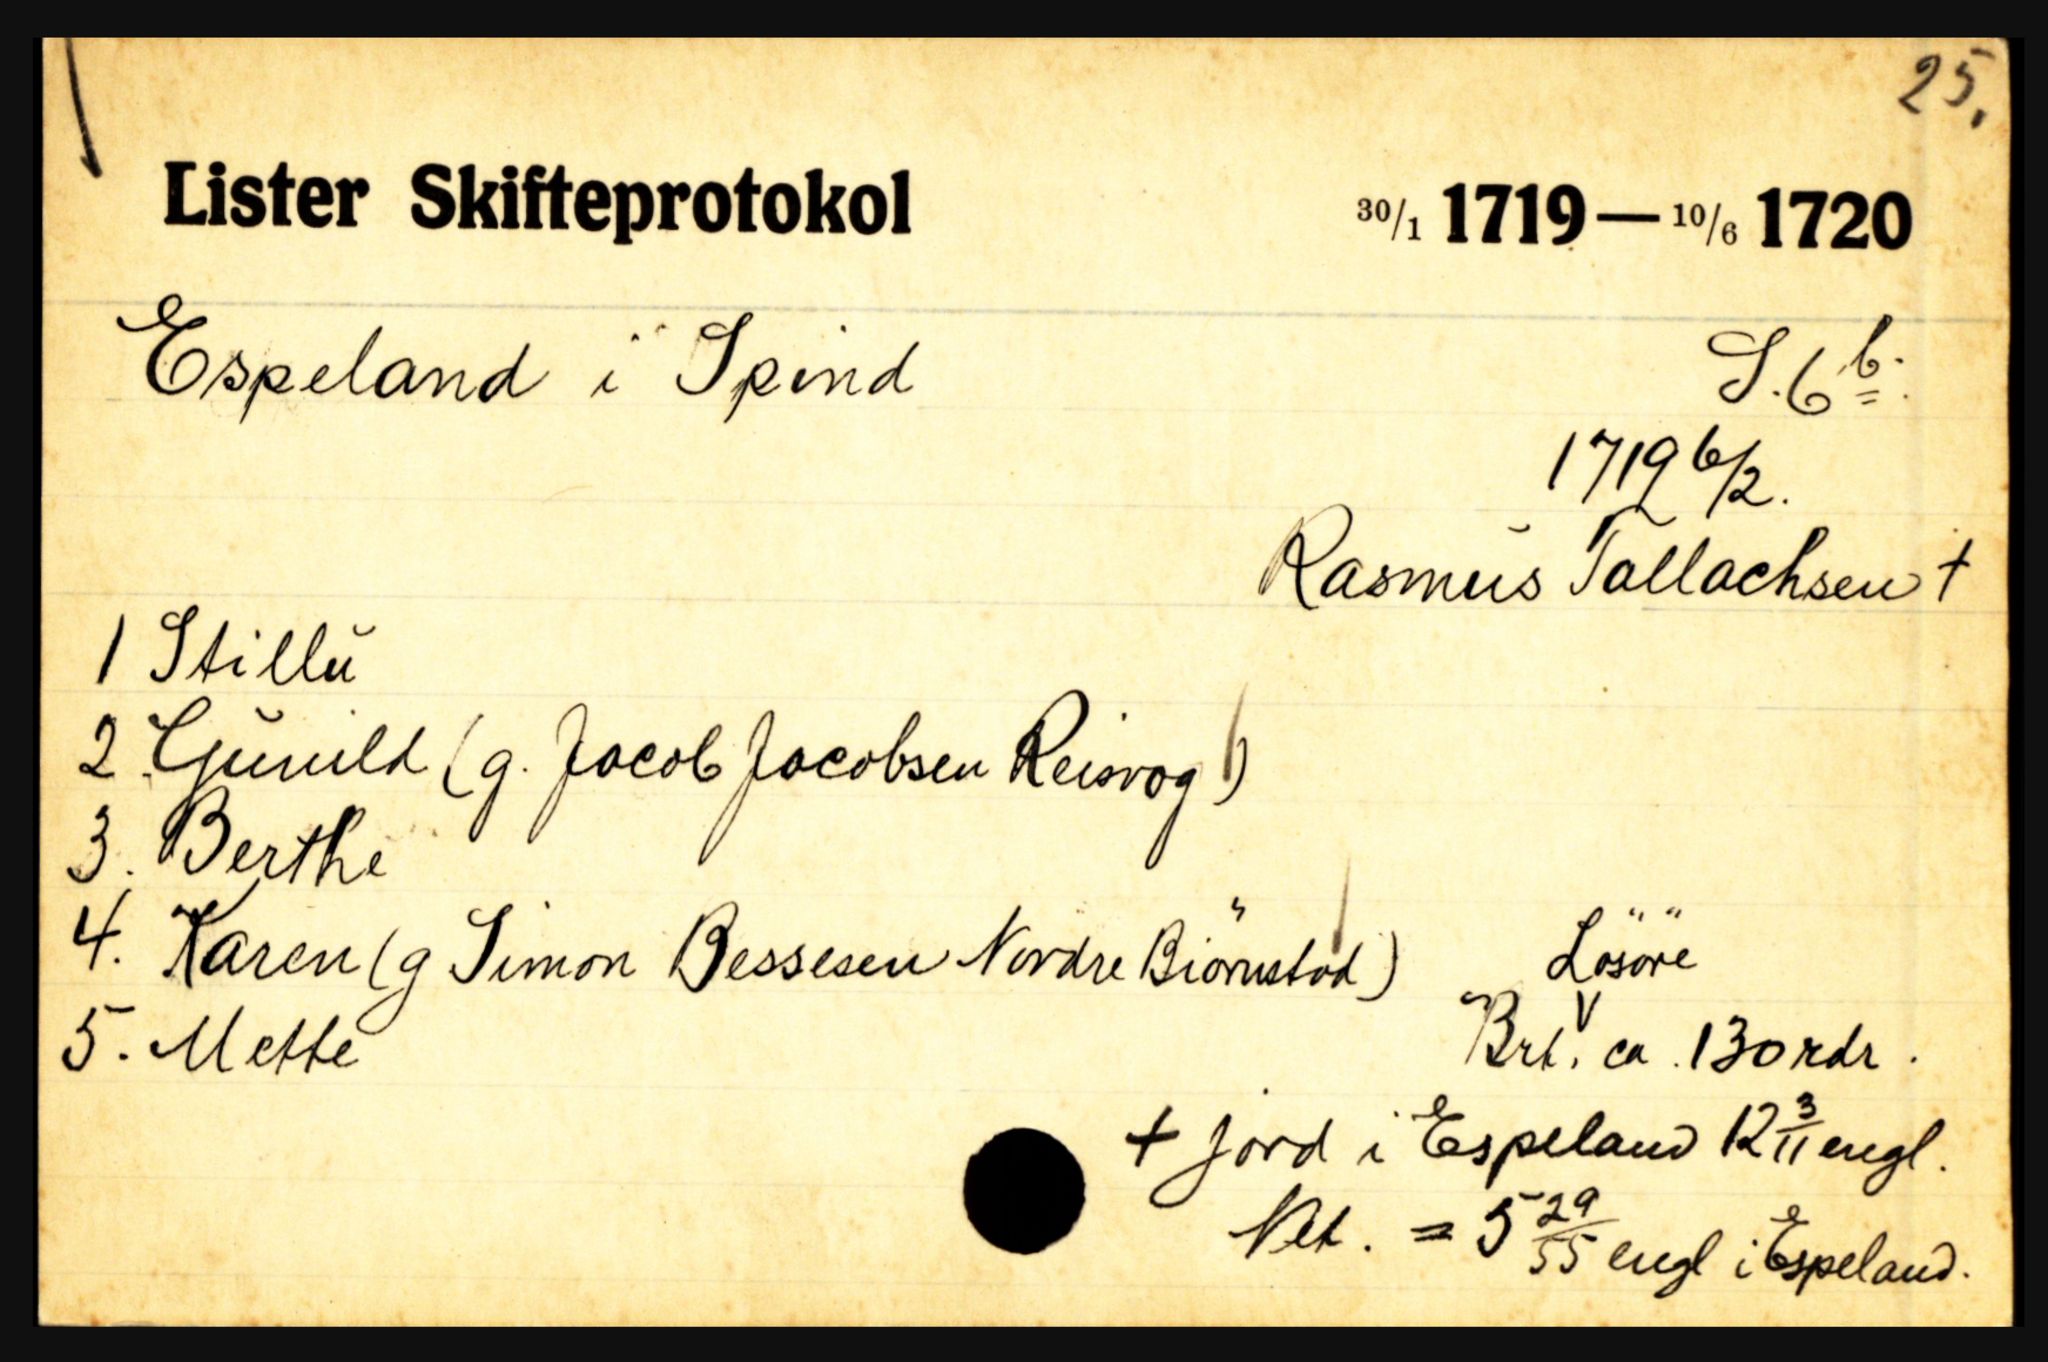 25.
Lister Skifteprotokol 30/1 1719 — 10/6 1720
Espeland i Spind S. 6 b.
1719 6/2.
Rasmus Tallachsen +
1 Stillu
2. Gunild (g. Jacob Jacobsen Reisvog)
3. Berthe
4. Karen (g Simon Bessesen Nordre Biörnstad) Lösöre
5. Mette Brt. ca. 130 rdr.
+ jord i Espeland 12 3/11 engl.
Net. = 5 29/55 engl i Espeland.